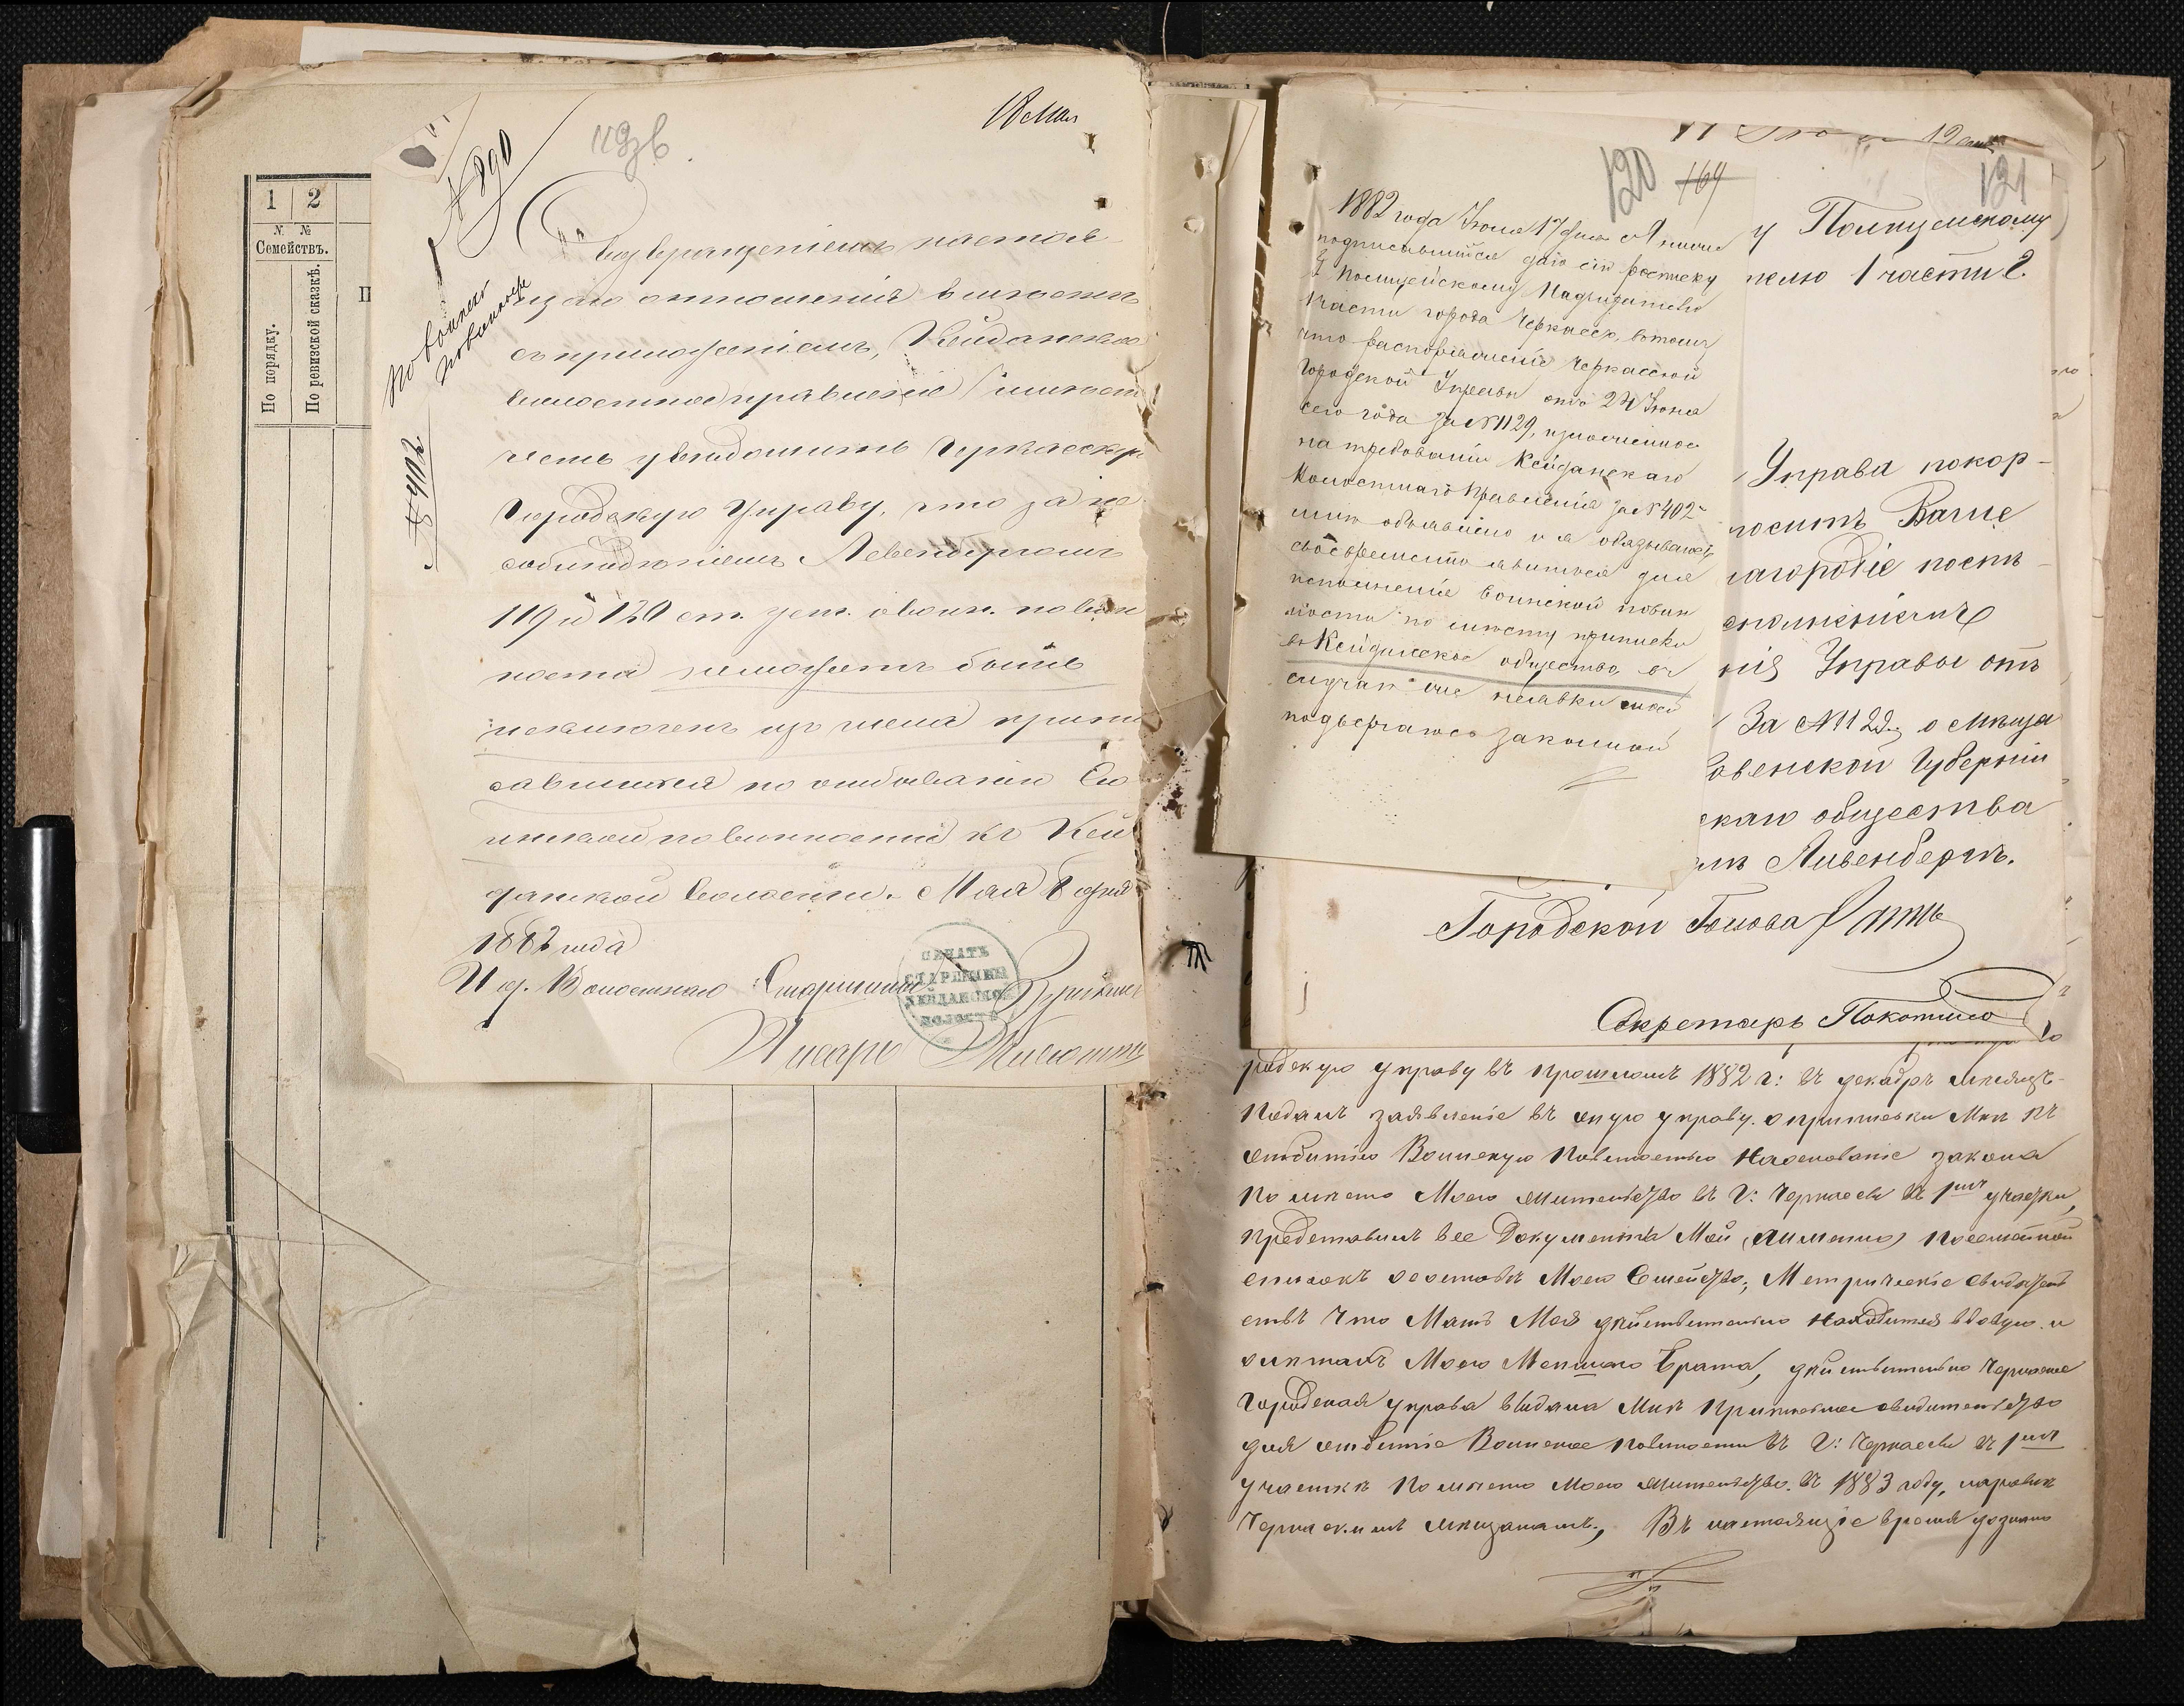 1 2
N. №
Семействъ.
По порядку.
По ревизской сказкѣ.
П
18 Мая
№ 890
119 об
По воинской
повинности
№ 402
Съ возвращеніемъ настоя-
щаго отношенія вмѣстѣ
съ приложеніемъ, Кейданское
волостное правленіе имѣетъ
честь увѣдомить Черкасскую
Городскую Управу, что за не
соблюденіемъ Левенбергомъ
119 и 120 ст. уст. о воин. повин
ности не можетъ быть
исключенъ изъ числа припи
савшихся по отбыванію Во
инской повинности къ Кей
данской волости. Мая 8 дня
1882 года
И д. Волостнаго Старшины
ПЕЧАТЬ
СТАРШИНЫ
КЕЙДАНСКОЙ
ВОЛОСТИ
Писарь
120 169
1882 года Іюля 17 дня Я ниже
подписавшійся даю сію росписку
Г Полицейскому Надзирателю
1 части города Черкассъ, въ томъ
что распоряженіе Черкасской
Городской Управы отъ 24 Іюня
сего года за №1129, изложенное
на требованіи Кейданскаго
Волостнаго Правленія за №402
мнѣ объявлено и я обязываюсь
своевременно явиться для
исполненія воинской повин
ности по мѣсту приписки
въ Кейданское общество, въ
случаѣ же неявки моей
подвергаюсь законной
121
у Полицейскому
телю 1 части г.
Управа покор-
носитъ Ваше
лагородіе поспѣ-
нія Управы отъ
За №1129, о мѣща
Ковенской Губерніи
скаго общества
Ливенбергъ.
Городской Голова
Секретарь Покотило
родскую управу въ прошломъ 1882 г: въ декабрѣ мѣсяцѣ
Подалъ заявленіе въ оную управу о приписки Мнѣ къ
отбытію Воинскую Повинностью На основаніе закона
По мѣсто Моего жительство въ Г: Черкассы въ 1мъ участки,
представилъ все Документы Мой, а именно Посемейной
списокъ о составѣ Моего Семейство, Метрическіе свидѣтель
ствъ что Мать Моя дѣйствительно Находится вдовую и
о лѣтахъ Моего Меньшаго Брата, дѣйствительно Черкасс
Городская управа выдала Мнѣ Приписное свидѣтельство
для отбытіе Воинское повинности въ Г: Черкассы въ 1мъ
участкѣ По мѣсто Моего жительство въ 1883 году, наровнѣ
Черкаскимъ мѣщанамъ, Въ настоящіе время дознано